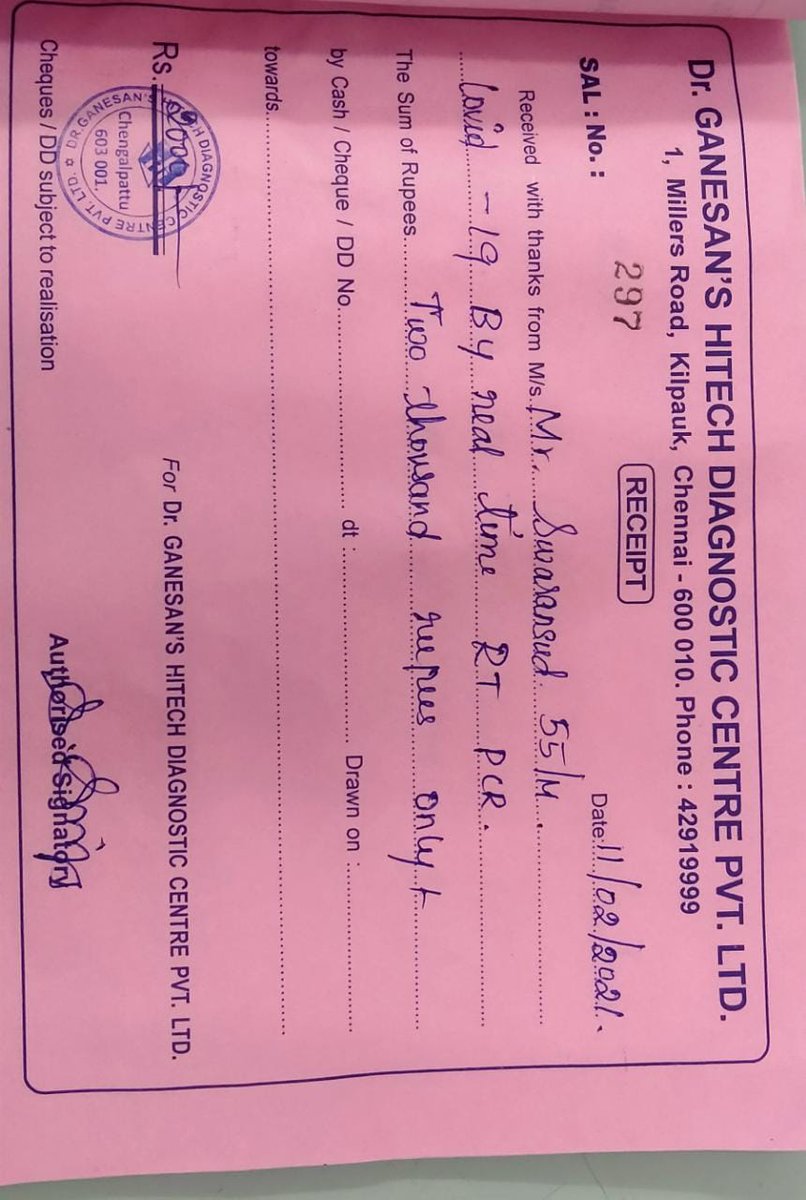 Dr. GANESAN'S HITECH DIAGNOSTIC CENTRE PVT. LTD.
1, Millers Road, Kilpauk, Chennai - 600 010. Phone : 42919999
RECEIPT
SAL : No. : 297 Date: 11/02/2021.
Received with thanks from M/s. Mr. 55/M.
Covid -19 By real time RT PCR.
The Sum of Rupees Two thousand rupees only
by Cash / Cheque / DD No. dt : Drawn on :
towards
For Dr. GANESAN'S HITECH DIAGNOSTIC CENTRE PVT. LTD.
Rs. 2000/-
DR. GANESAN'S HITECH DIAGNOSTIC CENTRE PVT. LTD.
Chengalpattu
603 001.
Authorised Signatory
Cheques / DD subject to realisation